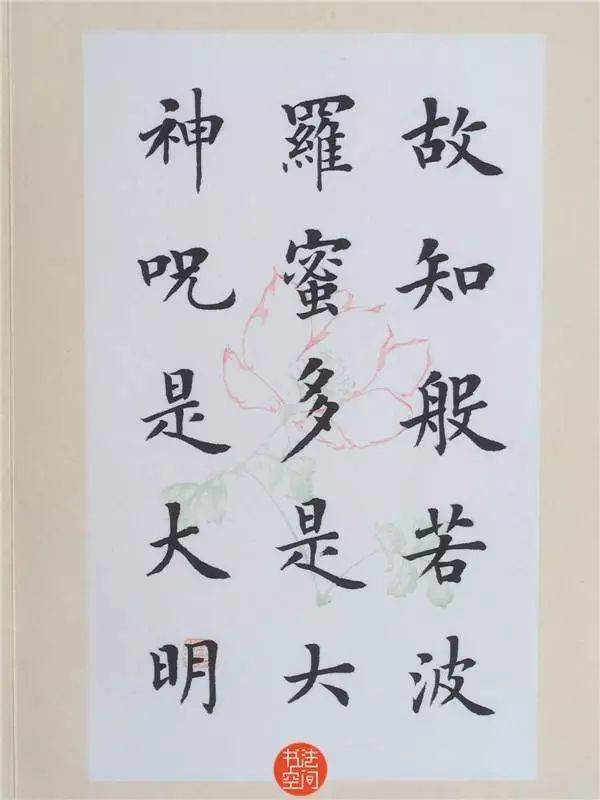 故知般若波
羅蜜多是大
神呪是大明
书法
空间